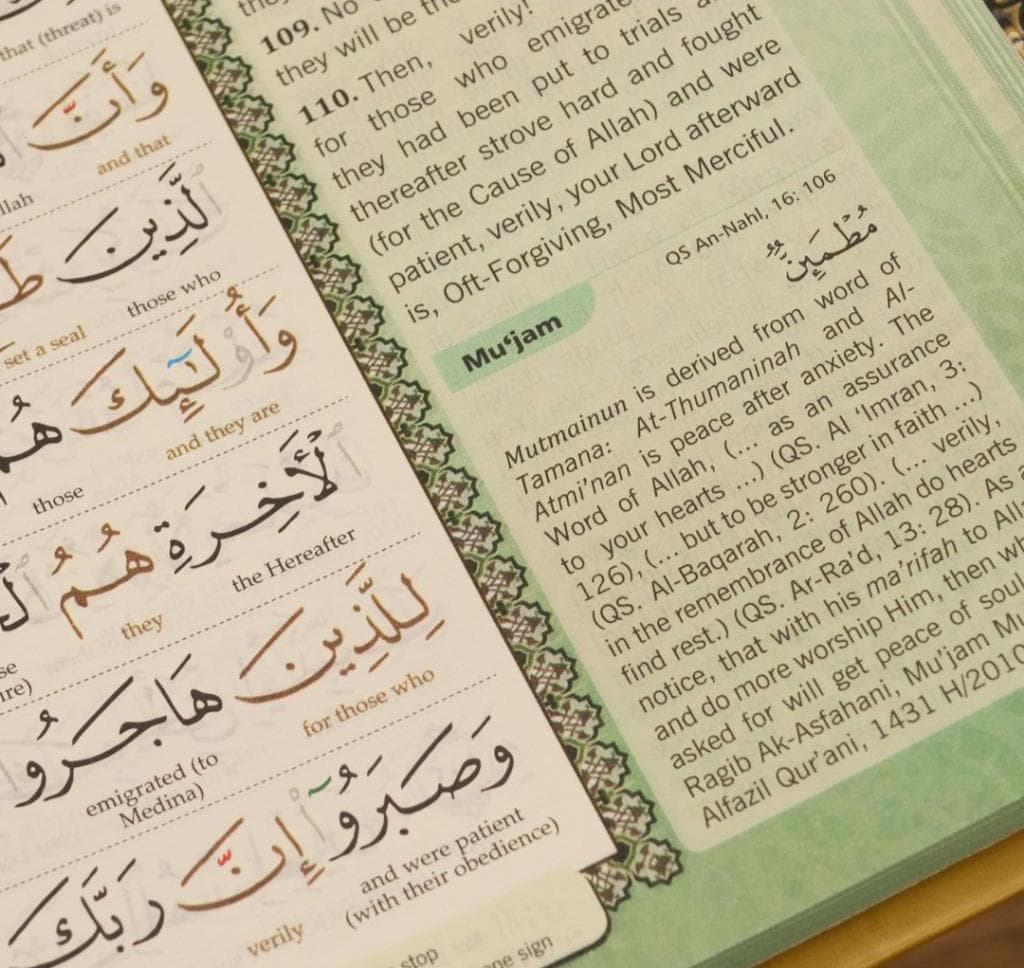 that (threat) is
وَأَنَّ
and that
llah
ٱلَّذِينَ
those who
set a seal
وَأُو۟لَـٰٓئِكَ
and they are
هُمُ
those
ٱلْأَخِرَةِ
the Hereafter
هُمُ
they
لِلَّذِينَ
for those who
هَاجَرُوا۟
emigrated (to
Medina)
وَصَبَرُوٓا۟
and were patient
(with their obedience)
إِنَّ
verily
رَبَّكَ
stop
one sign
109. No
they will be the
110. Then, verily!
for those who emigrate
they had been put to trials a
thereafter strove hard and fought
(for the Cause of Allah) and were
patient, verily, your Lord afterward
is, Oft-Forgiving, Most Merciful.
Mu‘jam
QS An-Nahl, 16: 106
مُطْمَئِنٌّۢ
Mutmainun is derived from word of
Tamana: At-Thumaninah and Al-
Atmi’nan is peace after anxiety. The
Word of Allah, (... as an assurance
to your hearts ...) (QS. Al ‘Imran, 3:
126), (... but to be stronger in faith ...)
(QS. Al-Baqarah, 2: 260). (... verily,
in the remembrance of Allah do hearts
find rest.) (QS. Ar-Ra’d, 13: 28). As a
notice, that with his ma’rifah to Alla
and do more worship Him, then wh
asked for will get peace of soul
Ragib Ak-Asfahani, Mu’jam Mu
Alfazil Qur’ani, 1431 H/2010